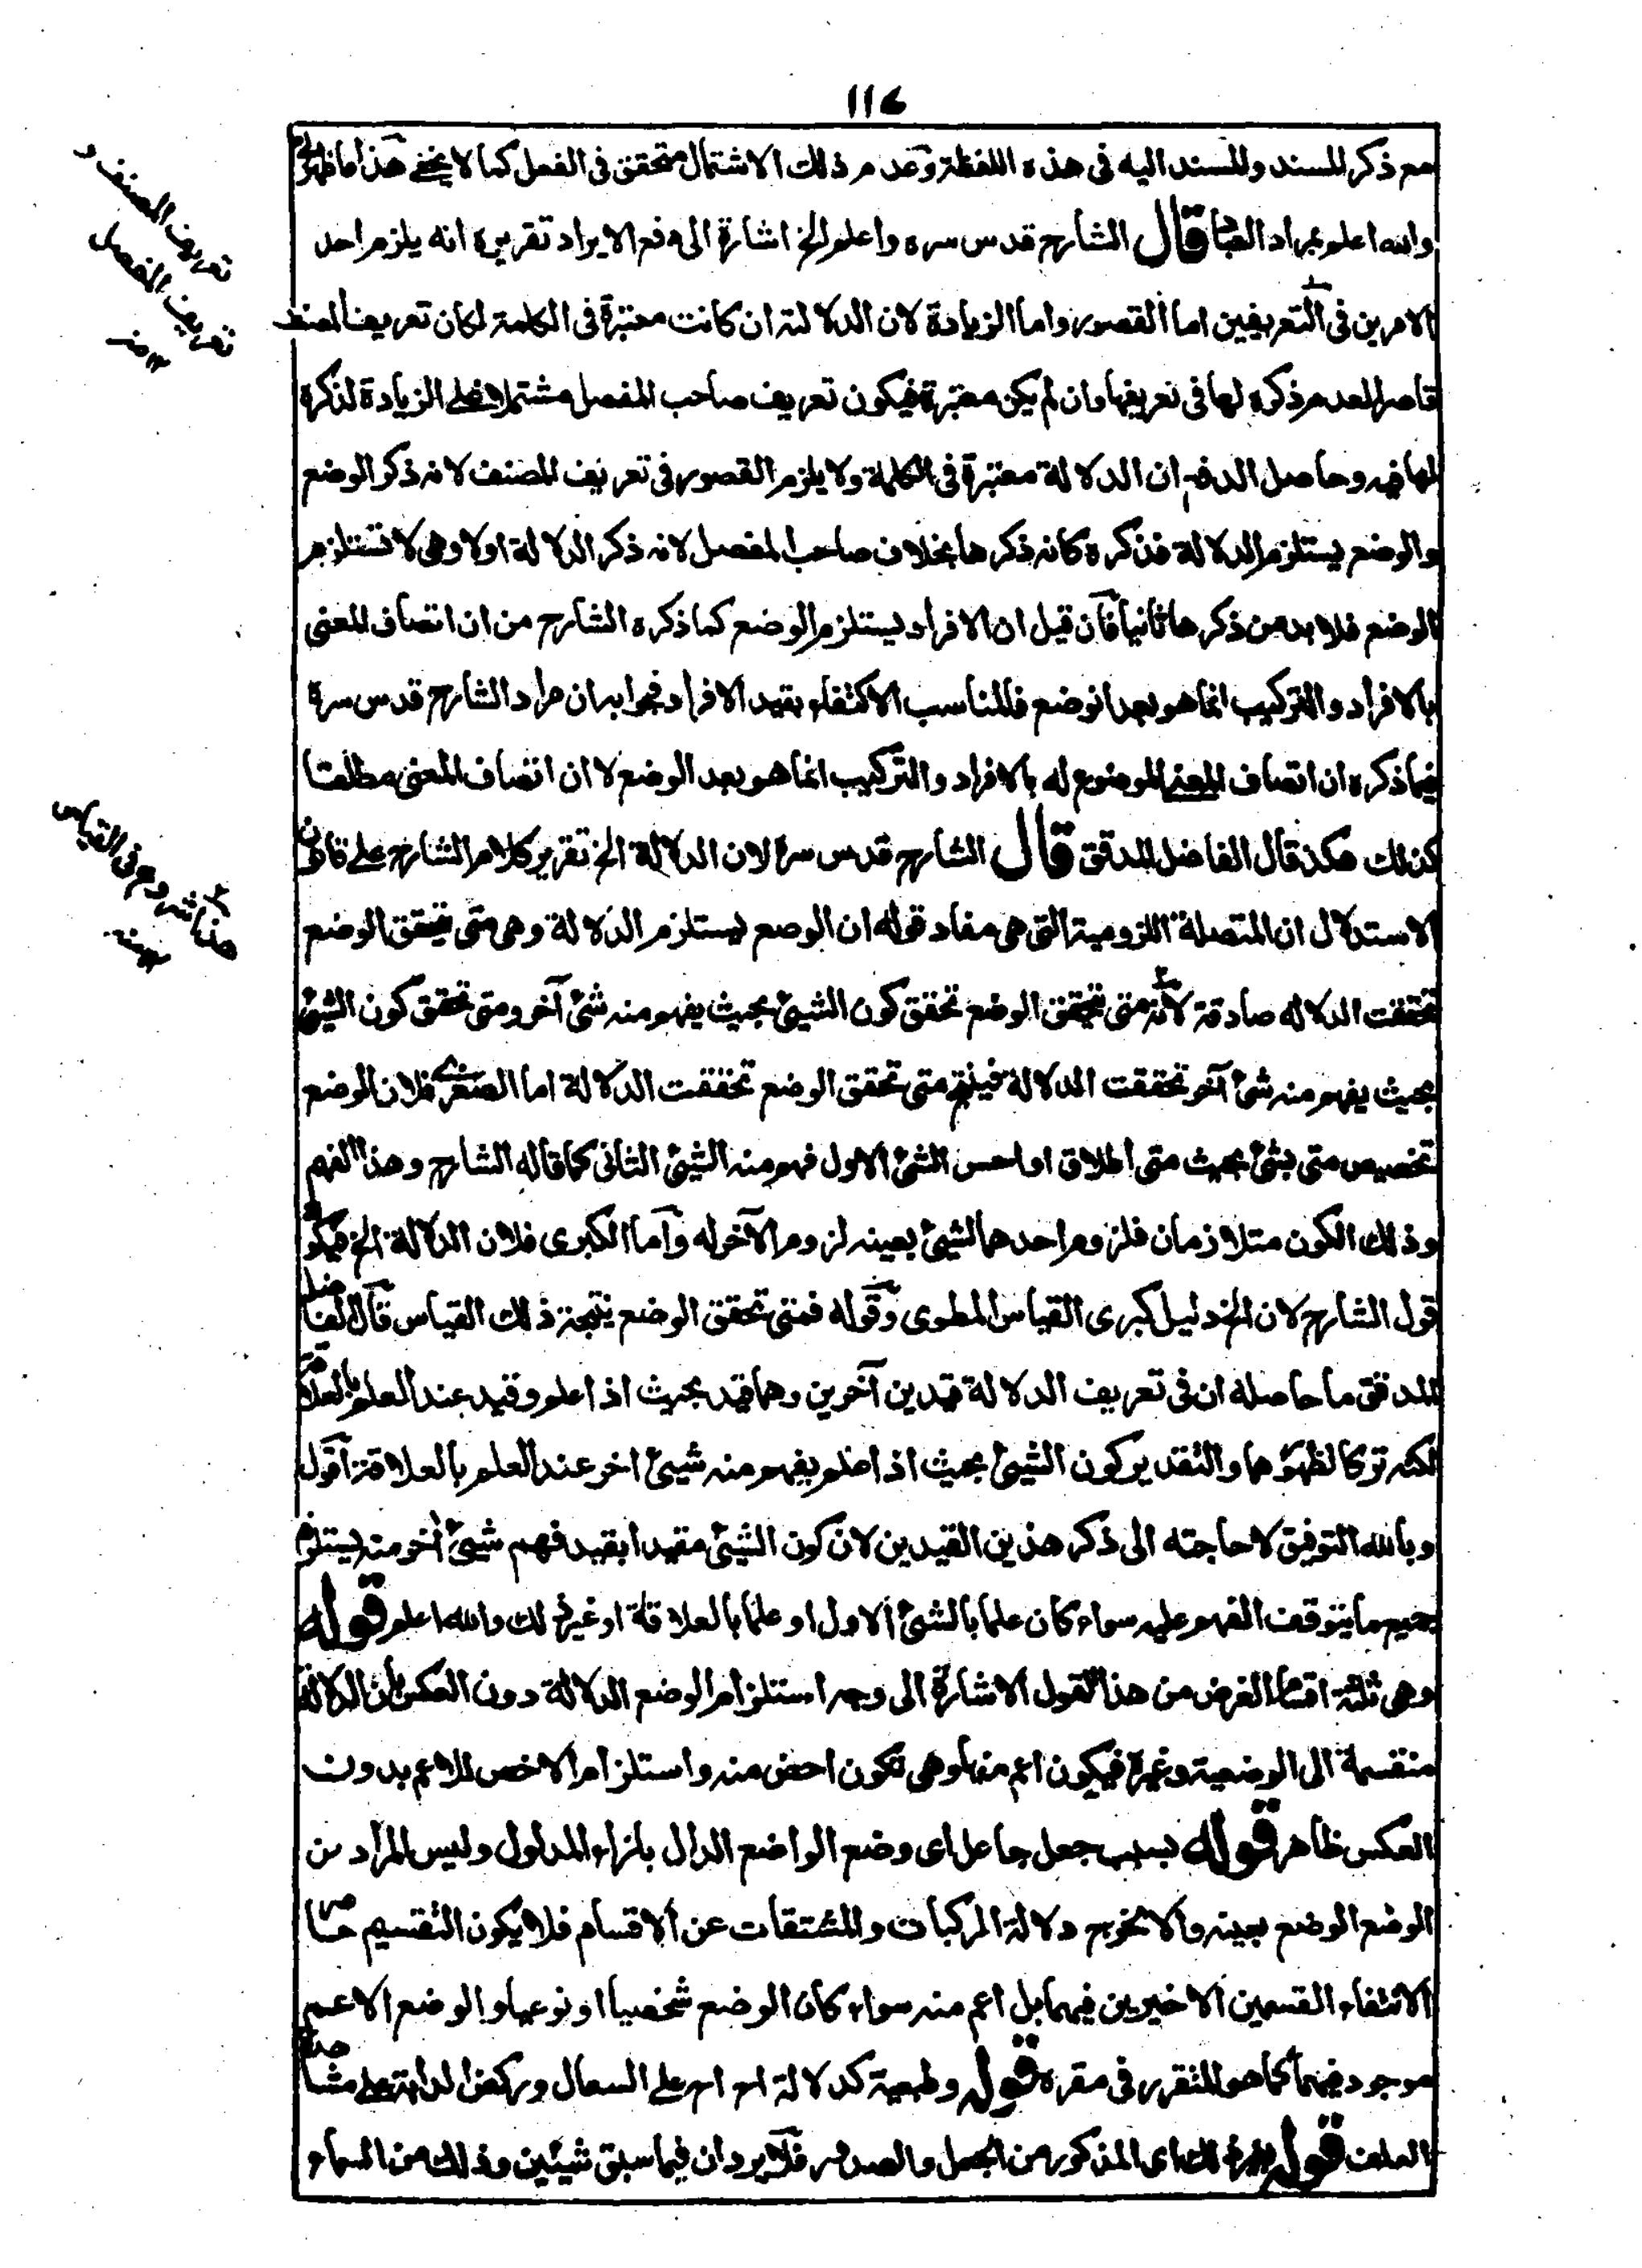 ١١٤
مع ذكر المسند والمسند اليه فى هذه اللفظة وعدم ذلك الاشتمال متحقق فى الفعل كما لا يخفى هذا ما ظهر لى
والله اعلم بمراد العباد قال الشارح قدس سره واعلم الخ اشارة الى دفع الايراد تقريره انه يلزم احد
الامرين فى التعريفين اما القصور واما الزيادة لان الدلالة ان كانت معتبرة فى الكلمة لكان تعريف المصنف
قاصرا لعدم ذكره لها فى تعريفها وان لم يكن معتبرة فيكون تعريف صاحب المفصل مشتملا على الزيادة لذكره
لها فيه وحاصل الدفع ان الدلالة معتبرة فى الكلمة ولا يلزم القصور فى تعريف المصنف لانه ذكر الوضع
والوضع يستلزم الدلالة فذكره كانه ذكرها بخلاف صاحب المفصل لانه ذكر الدلالة اولا وهى لا تستلزم
الوضع فلا بد من ذكرها ثانيا فان قيل ان الافراد يستلزم الوضع كما ذكره الشارح من ان اتصاف المعنى
بالافراد والتركيب انما هو بعد الوضع فالمناسب الاكتفاء بقيد الافراد فجوابه ان مراد الشارح قدس سره
فيما ذكره ان اتصاف المعنى الموضوع له بالافراد والتركيب انما هو بعد الوضع لا ان اتصاف المعنى مطلقا
كذلك هكذ قال الفاضل المدقق قال الشارح قدس سره لان الدلالة الخ تقرير كلام الشارح على قانون
الاستدلال ان المتصلة اللزومية التى هى مفاد قوله ان الوصع يستلزم الدلالة وهى متى تحقق الوضع
تحققت الدلاله صادقة لانه متى تحقق الوضع تحقق كون الشيئ بحيث يفهم منه شئ آخر ومتى تحقق كون الشيئ
بحيث يفهم منه شئ آخر تحققت الدلالة فينتج متى تحقق الوضع تحققت الدلالة اما الصغرى فلان الوضع
تخصيص متى بشئ بحيث متى اطلاق او احس الشئ الاول فهم منه الشيئ الثانى كما قاله الشارح وهذا الفهم
وذلك الكون متلازمان فلزوم احدهما لشيئ بعينه لزوم الآخر له واما الكبرى فلان الدلالة الخ فيكون
قول الشارح لان الخ دليل كبرى القياس المطوى وقوله فمتى تحقق الوضع نتيجة ذلك القياس قال الفاضل
المدقق ما حاصله ان فى تعريف الدلالة قيدين آخرين وهما قيد بحيث اذا علم وقيد عند العلم بالعلاقة
لكنه تركا لظهورهما والتقدير كون الشيئ بحيث اذا علم يفهم منه شيئ اخر عند العلم بالعلاقة اقول
وبالله التوفيق لا حاجته الى ذكر هذين القيدين لان كون الشيئ مقيدا بقيد فهم شيئ اخر منه يستلزم
جميع ما يتوقف الفهم عليه سواء كان علما بالشئ الاول او علما بالعلاقة او غير ذلك والله اعلم قوله
وهى ثلثة اقسام الغرض من هذا القول الاشارة الى وجه استلزام الوضع الدلالة دون العكس بان الدلالة
منقسمة الى الوضعية وغيرها فيكون اعم منها وهى تكون اخص منه واستلزام الاخص للاعم بدون
العكس ظاهر قوله بسبب جعل جاعل اى وضع الواضع الدال بازاء المدلول وليس المراد من
الوضع الوضع بعينه والا لخرج دلالة المركبات والمشتقات عن الاقسام فلا يكون التقسيم حاصرا
لانتفاء القسمين الاخيرين فيهما بل اعم منه سواء كان الوضع شخصيا او نوعيا والوضع الاعم
موجود فيهما كما هو المتقرر فى مقره قوله وطبعية كدلالة اح اح على السعال وركض الدابة على مشاهدة
العلف قوله اى المذكور من الجعل والصدور فلا يرد ان فيما سبق شيئين وذلك من السماء
تعريف المصنف و
تعريف المفصل
١٢ منه
هذا شروع فى القياس
١٢ منه